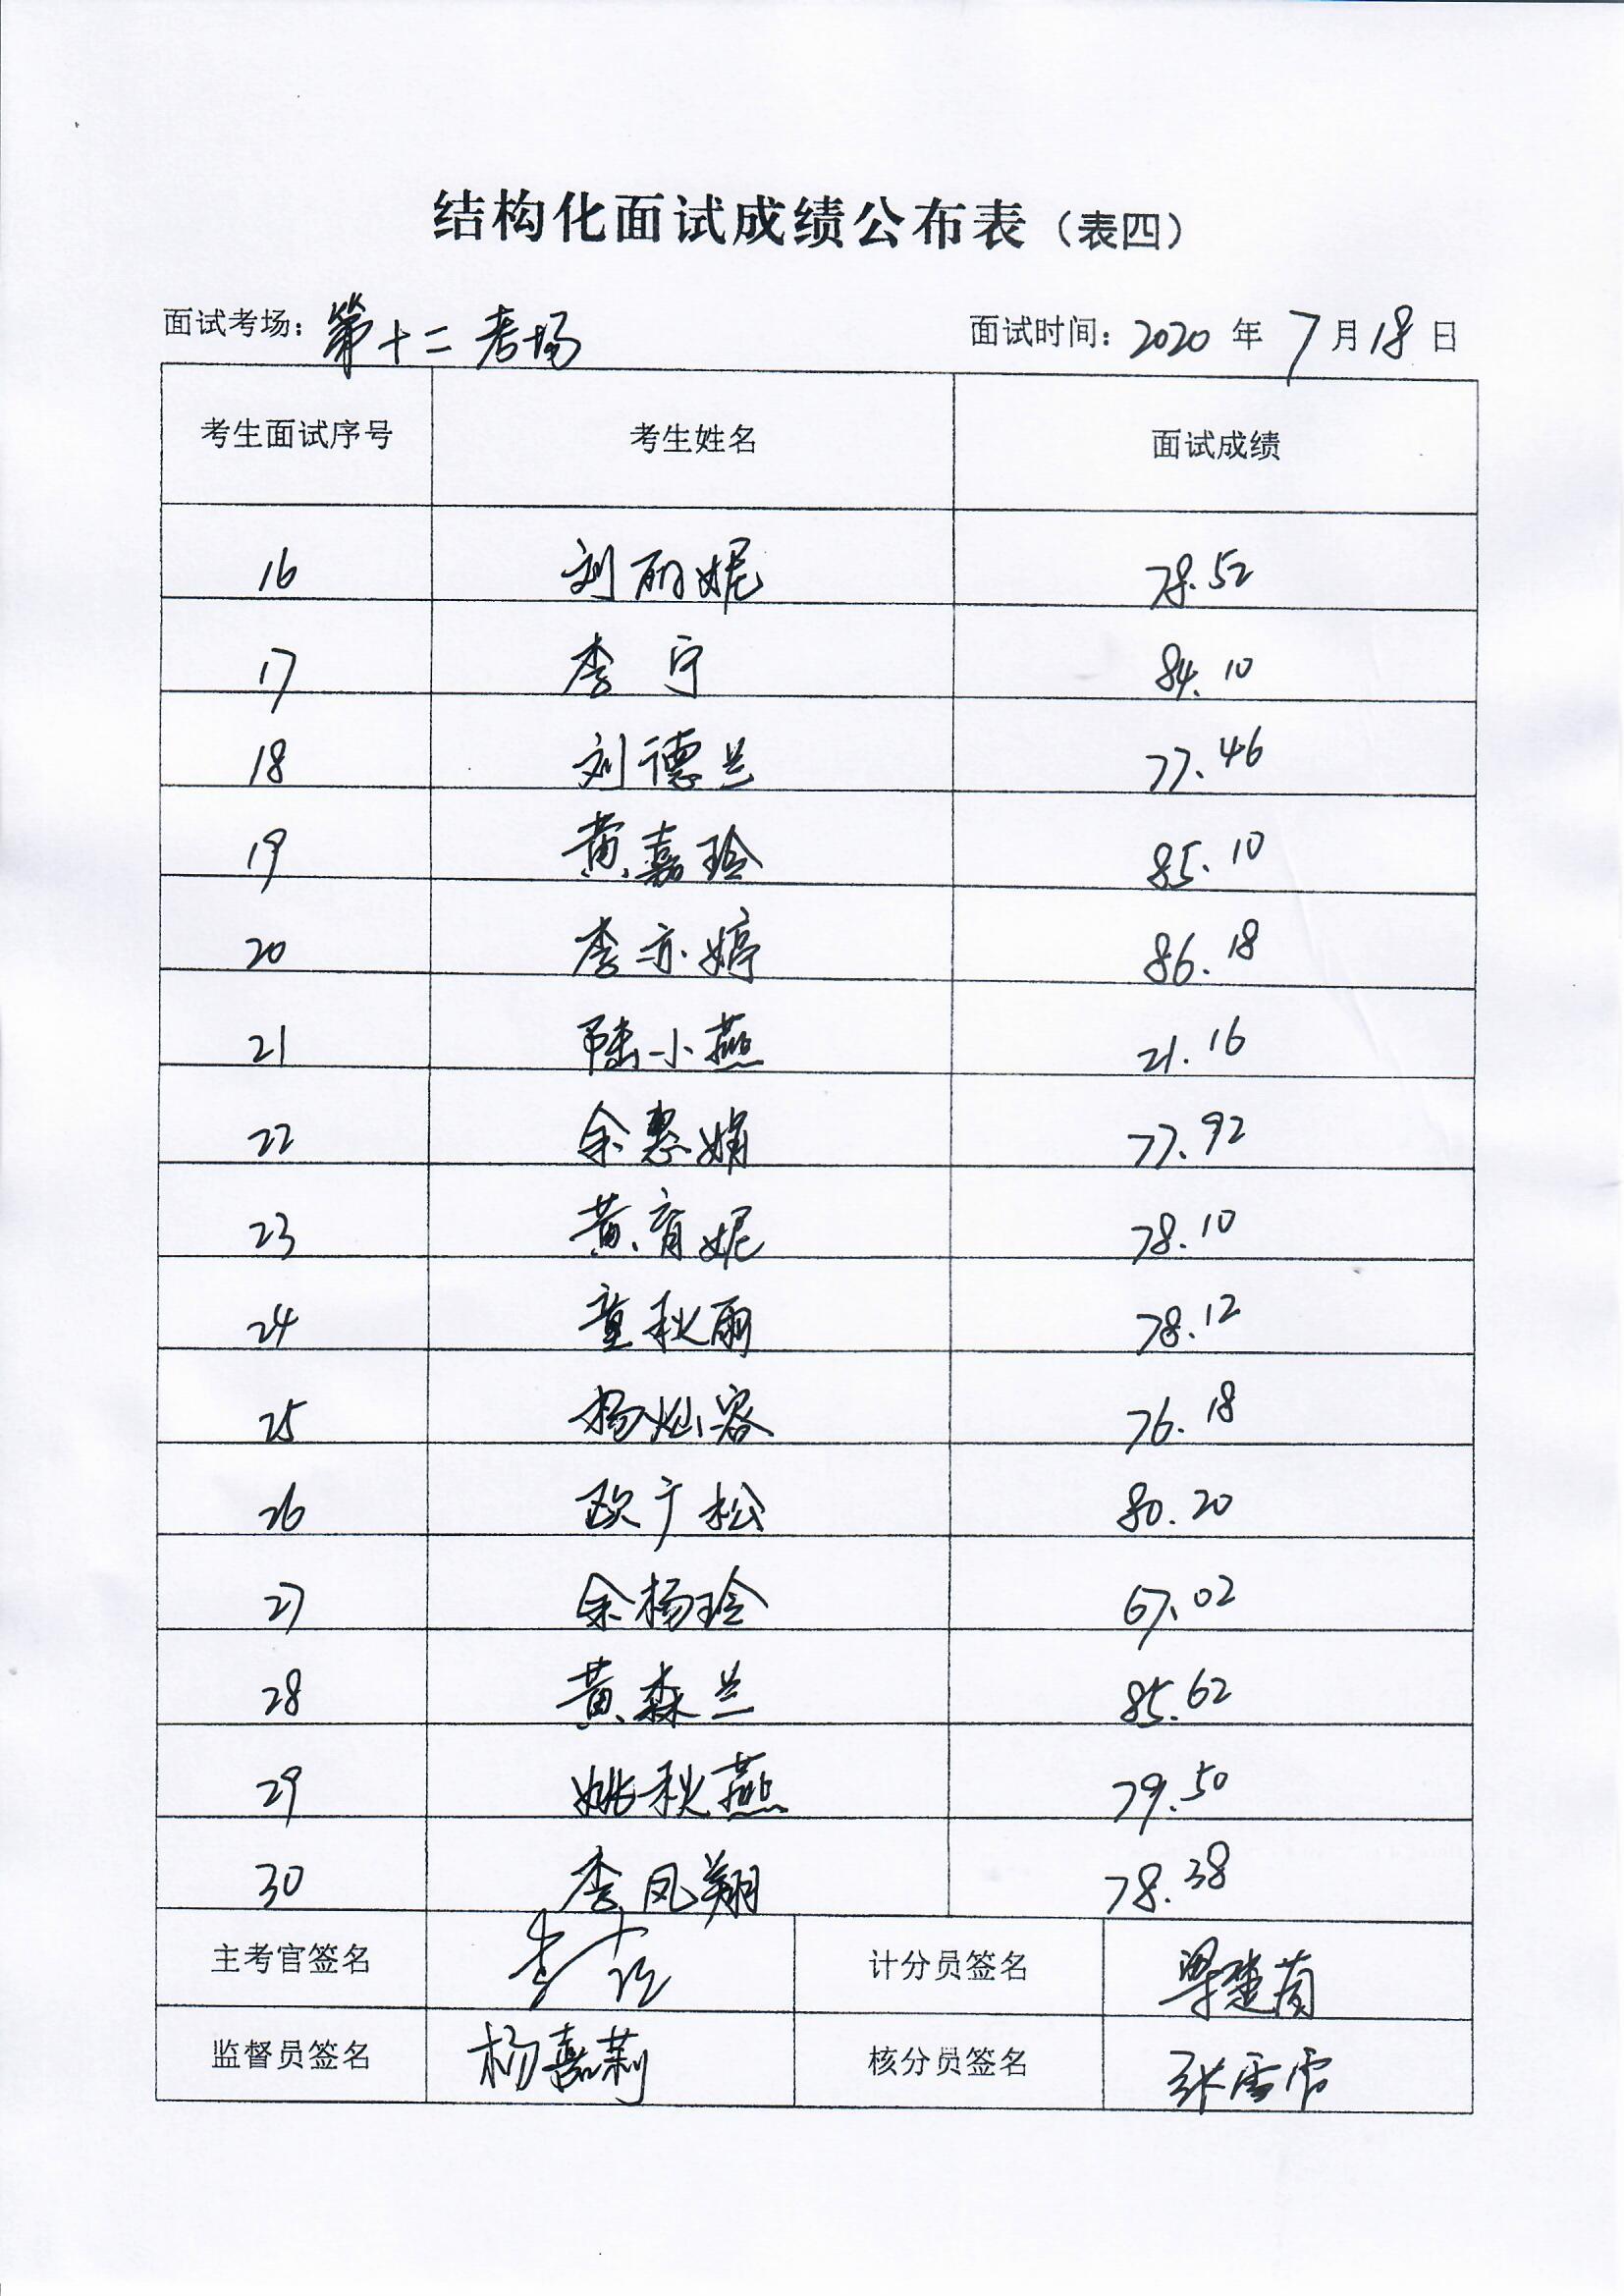 结构化面试成绩公布表（表四）
面试考场：第十二考场 面试时间：2020年7月18日
考生面试序号 考生姓名 面试成绩
16 刘丽妮 78.52
17 李宁 84.10
18 刘德兰 77.46
19 黄嘉玲 85.10
20 李亦婷 86.18
21 陆小燕 21.16
22 余惠娟 77.92
23 黄育妮 78.10
24 童秋雨 78.12
25 杨灿容 76.18
26 欧广松 80.20
27 余杨玲 67.02
28 黄森兰 85.62
29 姚秋燕 79.50
30 李凤翔 78.38
主考官签名 计分员签名
监督员签名 杨嘉莉 核分员签名